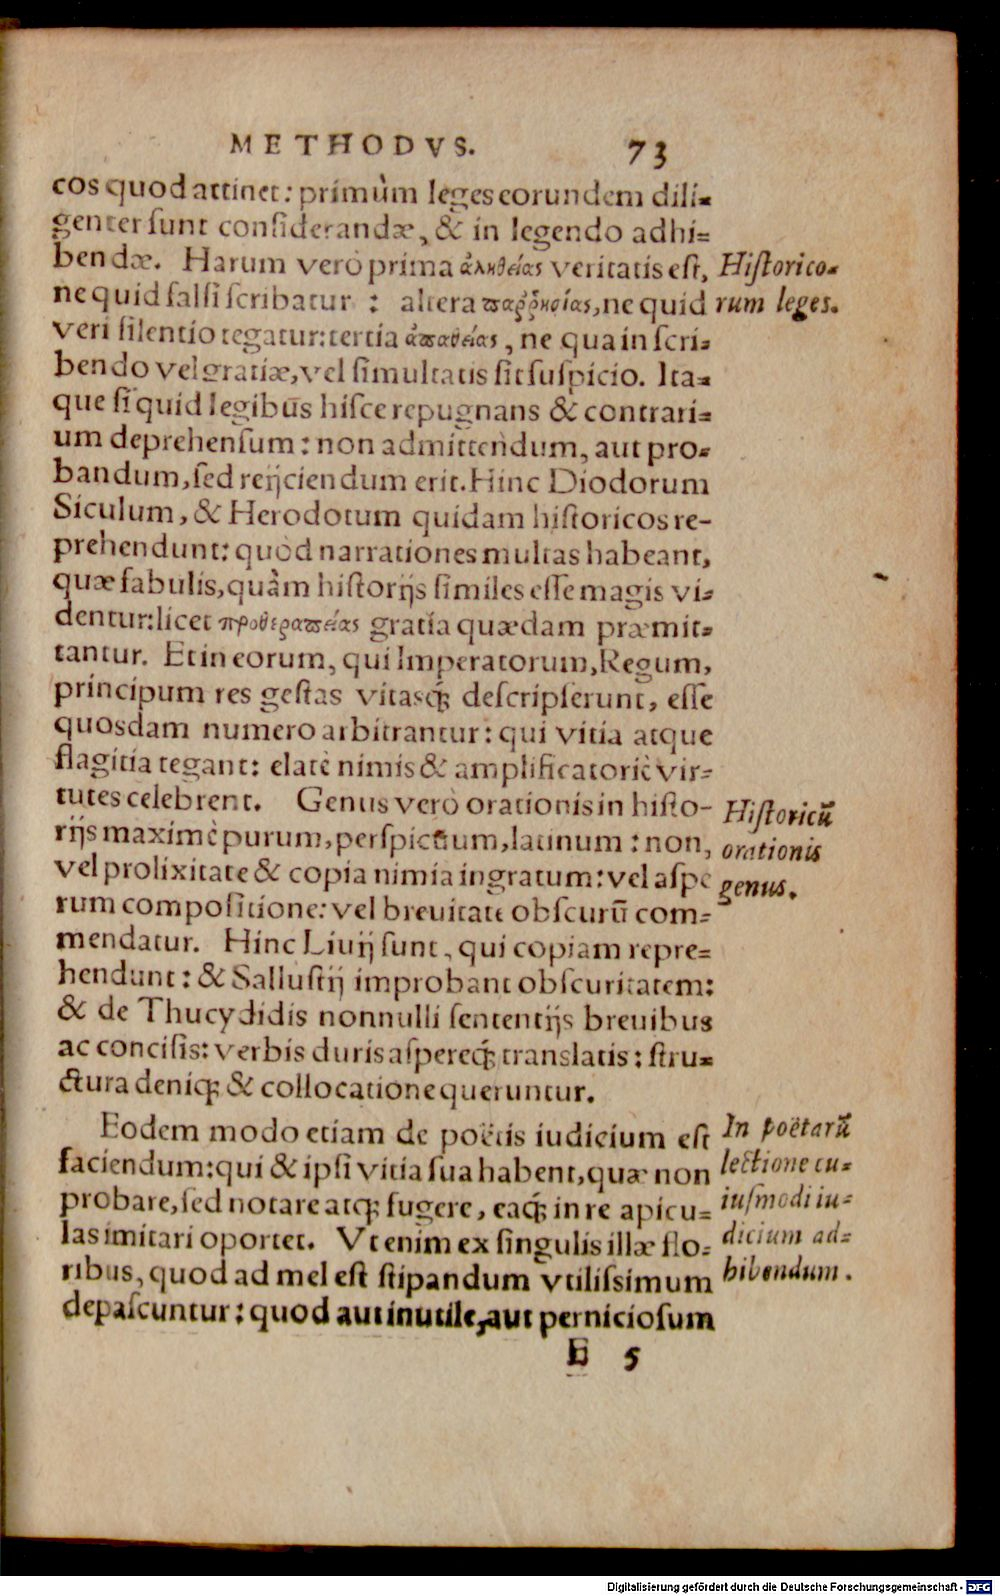 METHODVS. 73
cos quod attinet: primùm leges eorundem dili-
genter sunt considerandæ, & in legendo adhi-
bendæ. Harum verò prima ἀληθείας veritatis est,
Historico-
ne quid falsi scribatur : altera παῤῥησίας, ne quid
rum leges.
veri silentio tegatur: tertia ἀπαθείας, ne qua in scri-
bendo vel gratiæ, vel simultatis sit suspicio. Ita-
que si quid legibus hisce repugnans & contrari-
um deprehensum: non admittendum, aut pro-
bandum, sed reijciendum erit. Hinc Diodorum
Siculum, & Herodotum quidam historicos re-
prehendunt: quòd narrationes multas habeant,
quæ fabulis, quàm historijs similes esse magis vi-
dentur: licet προθεραπείας gratia quædam præmit-
tantur. Et in eorum, qui Imperatorum, Regum,
principum res gestas vitasq́; descripserunt, esse
quosdam numero arbitrantur: qui vitia atque
flagitia tegant: elatè nimis & amplificatoriè vir-
tutes celebrent. Genus verò orationis in histo-
Historicū
rijs maximè purum, perspicuum, latinum : non,
orationis
vel prolixitate & copia nimia ingratum: vel aspe
genus.
rum compositione: vel breuitate obscurū com-
mendatur. Hinc Liuij sunt, qui copiam repre-
hendunt: & Sallustij improbant obscuritatem:
& de Thucydidis nonnulli sententijs breuibus
ac concisis: verbis duris aspereq́; translatis: stru-
ctura deniq; & collocatione queruntur.
Eodem modo etiam de poëtis iudicium est
In poëtarū
faciendum: qui & ipsi vitia sua habent, quæ non
lectione cu-
probare, sed notare atq; fugere, eaq́; in re apicu-
iusmodi iu-
las imitari oportet. Vt enim ex singulis illæ flo-
dicium ad-
ribus, quod ad mel est stipandum vtilissimum
hibendum.
depascuntur: quod aut inutile, aut perniciosum
E 5
Digitalisierung gefördert durch die Deutsche Forschungsgemeinschaft - DFG